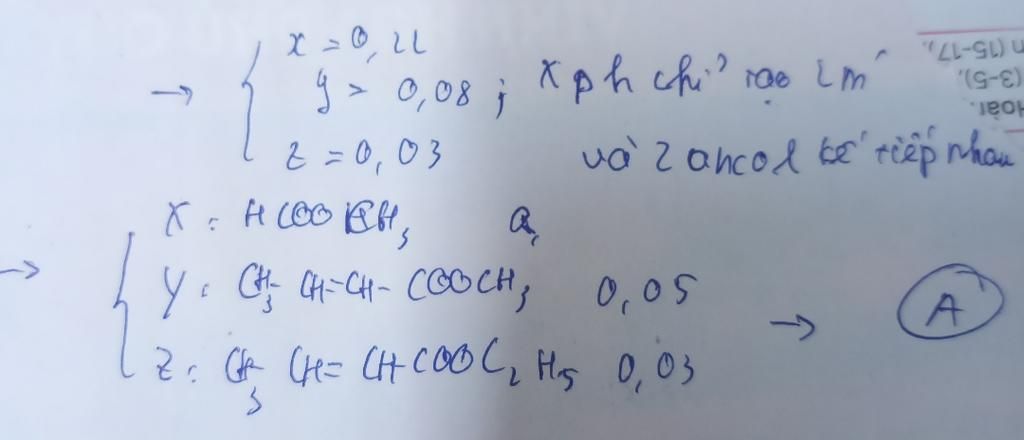 → { x = 0,22
y = 0,08 ; X pứ chỉ tạo 2 m
z = 0,03 và 2 ancol kế tiếp nhau
→ { X : HCOOCH3 0,
Y : CH3-CH=CH-COOCH3 0,05
Z : CH3 CH=CHCOOC2H5 0,03 → A
n (15-17),
(3-5),
Hoàr.